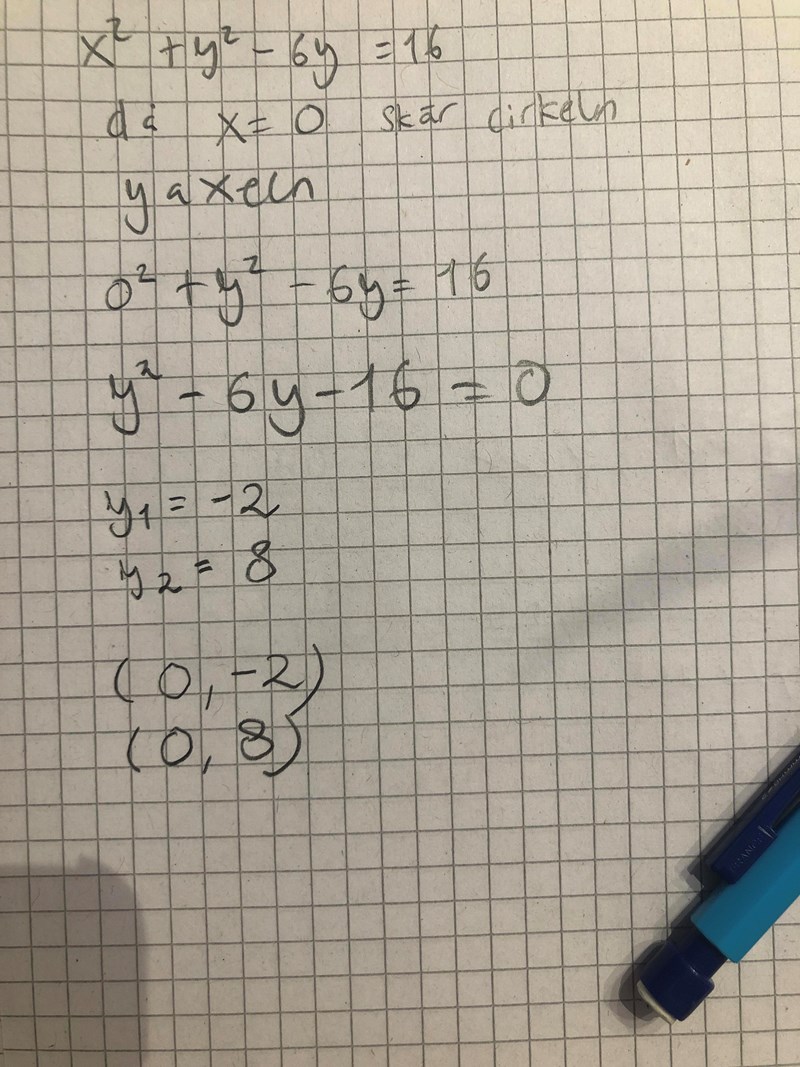 x² + y² - 6y = 16
då x = 0 skär cirkeln
y axeln
0² + y² - 6y = 16
y² - 6y - 16 = 0
y₁ = -2
y₂ = 8
(0, -2)
(0, 8)